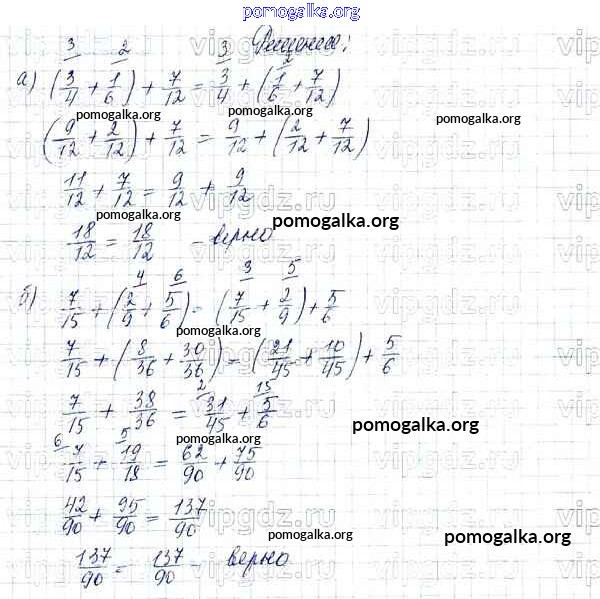 pomogalka.org
Решение:
3 2 3 2
а) (3/4 + 1/6) + 7/12 = 3/4 + (1/6 + 7/12)
pomogalka.org pomogalka.org
(9/12 + 2/12) + 7/12 = 9/12 + (2/12 + 7/12)
pomogalka.org
11/12 + 7/12 = 9/12 + 9/12
pomogalka.org
pomogalka.org
18/12 = 18/12 - верно
4 6 3 5
б) 7/15 + (2/9 + 5/6) = (7/15 + 2/9) + 5/6
pomogalka.org
7/15 + (8/36 + 30/36) = (21/45 + 10/45) + 5/6
pomogalka.org
2 15
7/15 + 38/36 = 31/45 + 5/6
pomogalka.org
pomogalka.org
6 5
7/15 + 19/18 = 62/90 + 75/90
42/90 + 95/90 = 137/90
pomogalka.org
pomogalka.org
137/90 = 137/90 - верно
vipgdz.ru